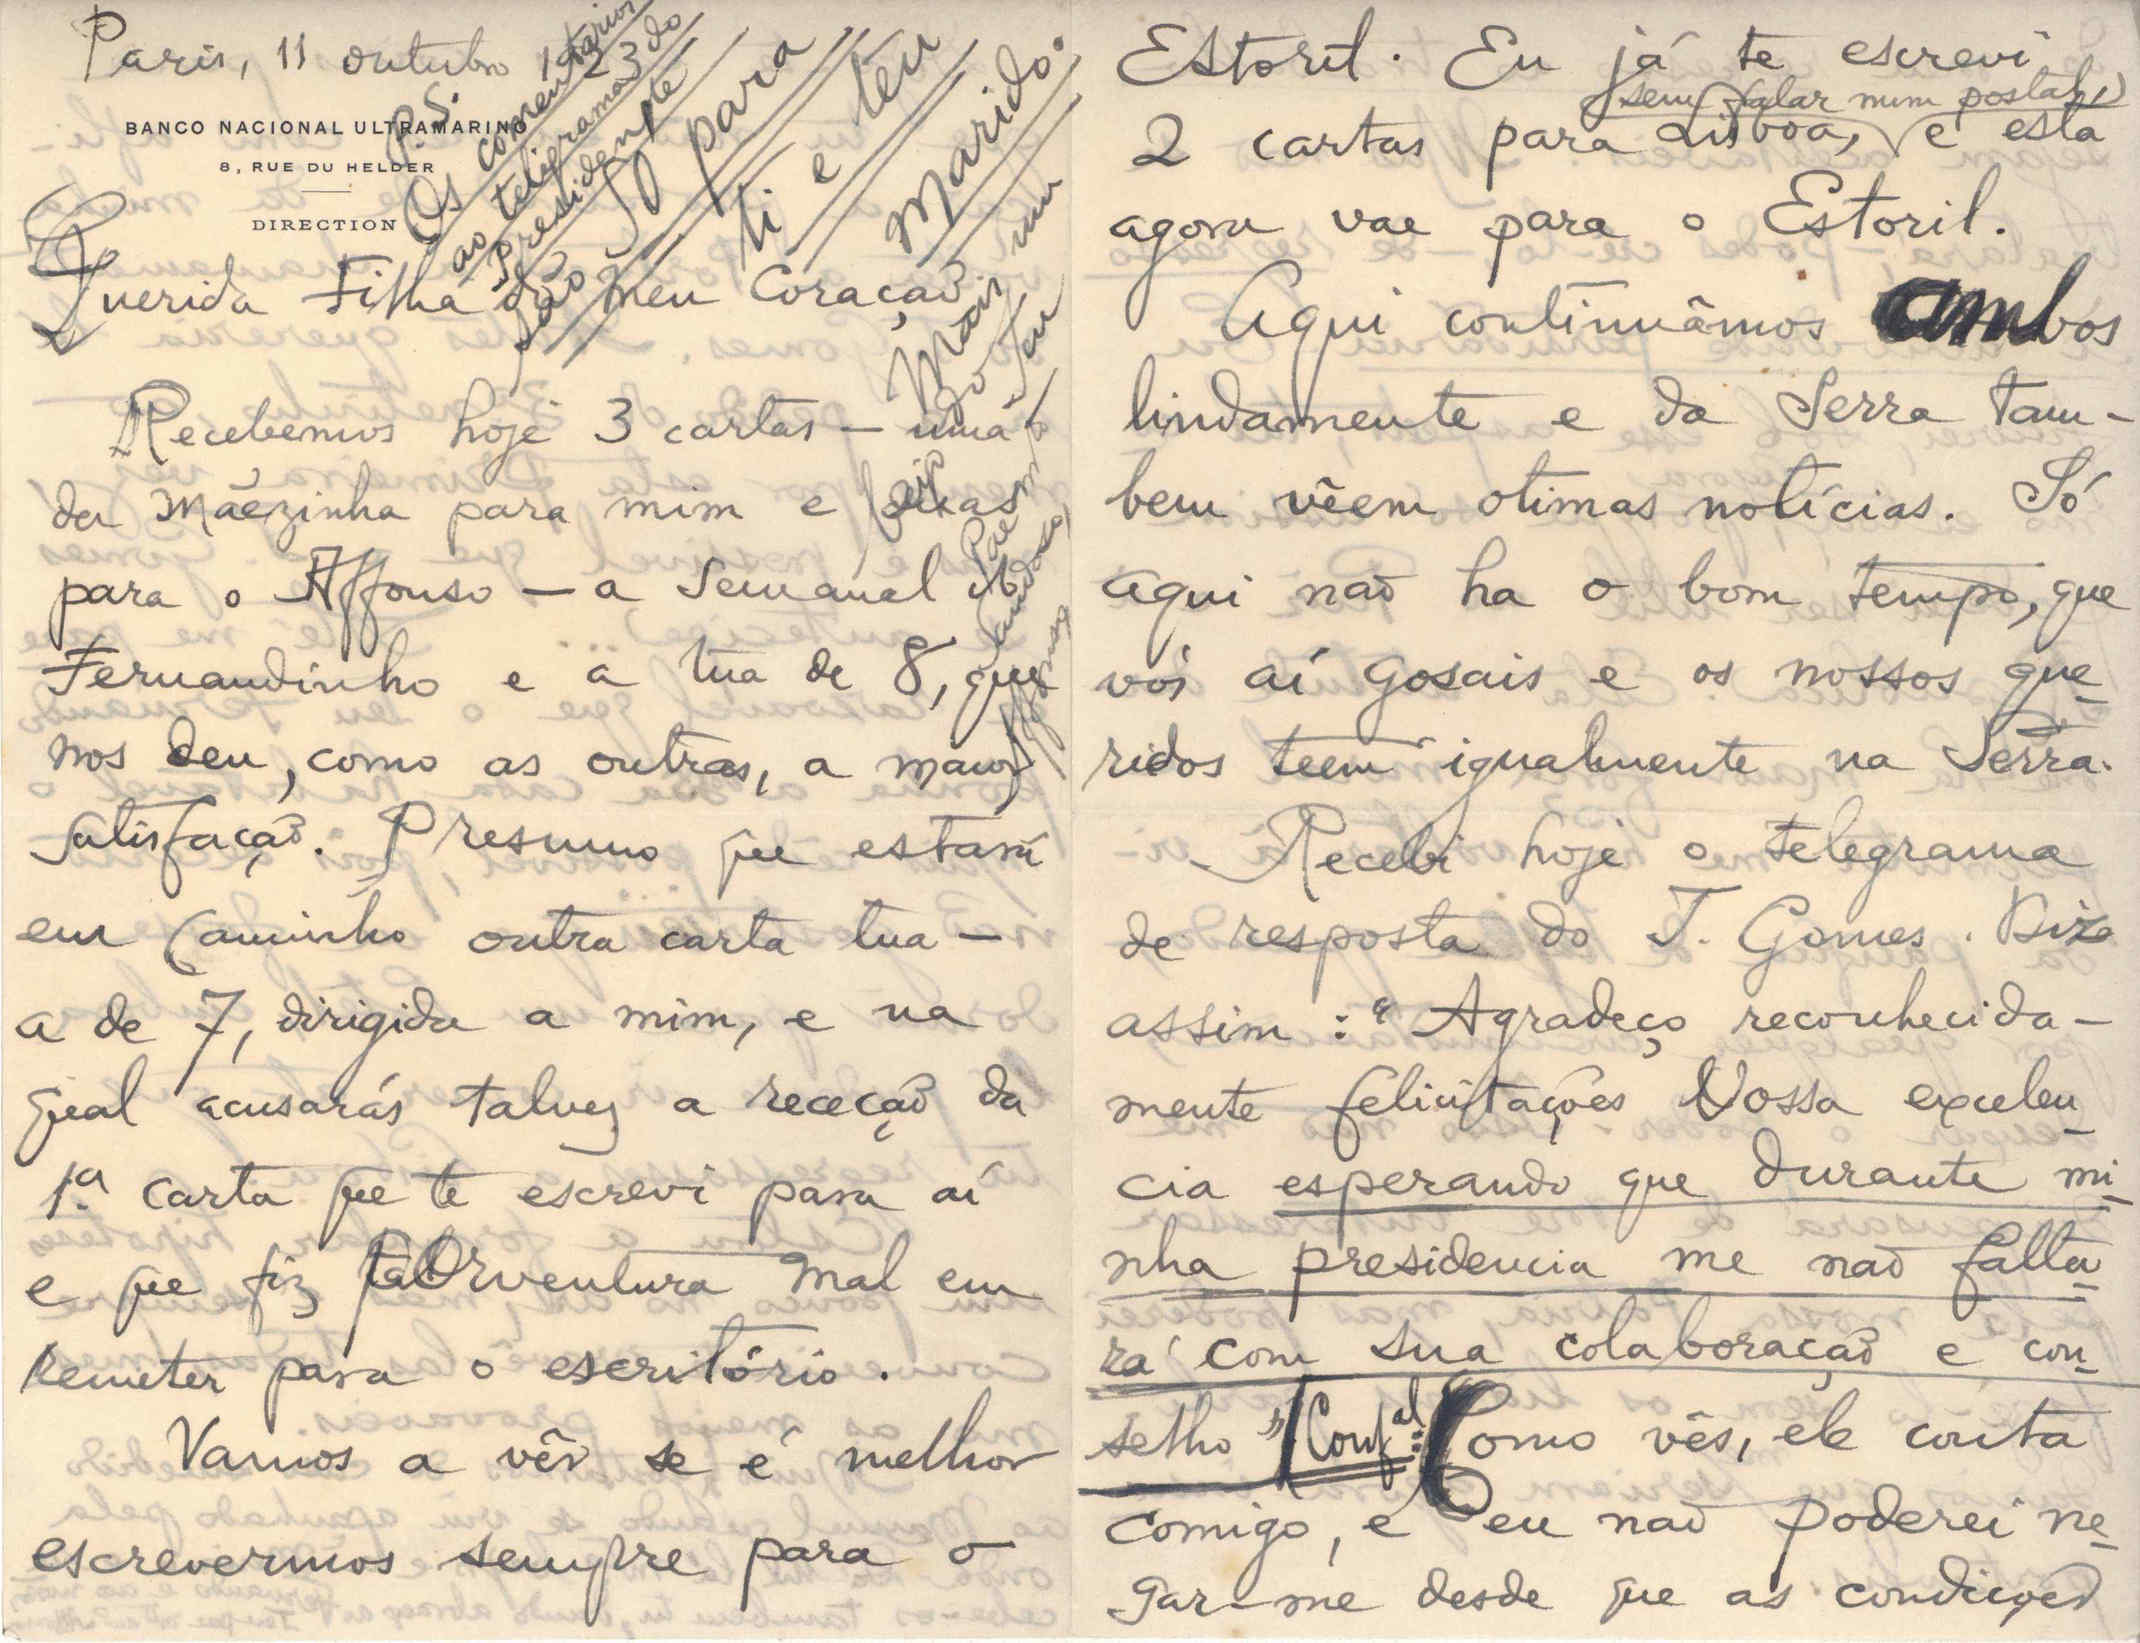 Paris, 11 outubro 1923
BANCO NACIONAL ULTRAMARINO
8, RUE DU HELDER
DIRECTION
P.S.
Os comentarios
ao telegrama do
presidente
são só para
ti e teu
Marido.
Mais um
do teu
Pae m.to
Affonso
Querida Filha do meu Coração
Recebemos hoje 3 cartas – uma
da Mãezinha para mim e duas
para o Affonso – a semanal do
Fernandinho e a tua de 8, que
nos deu, como as outras, a maior
satisfação. Presumo que estará
em caminho outra carta tua –
a de 7, dirigida a mim, e na
qual acusarás talvez a receção da
1.ª carta que te escrevi para aí
e que fiz porventura mal em
remeter para o escritório.
Vamos a vêr se é melhor
escrevermos sempre para o
Estoril. Eu já te escrevi
(sem falar num postal,)
2 cartas para Lisboa, e esta
agora vae para o Estoril.
Aqui continuâmos ambos
lindamente e da Serra tam-
bem vêem otimas notícias. Só
aqui não ha o bom tempo, que
vós aí gosais e os nossos que-
ridos teem igualmente na Serra.
– Recebi hoje o telegrama
de resposta do T. Gomes. Diz
assim: "Agradeço reconhecida-
mente felicitações Vossa excelen-
cia esperando que durante mi-
nha presidencia me não falta-
rá com sua colaboração e con-
selho" (Conf.al: Como vês, ele conta
comigo, e eu não poderei ne-
gar-me desde que as condições